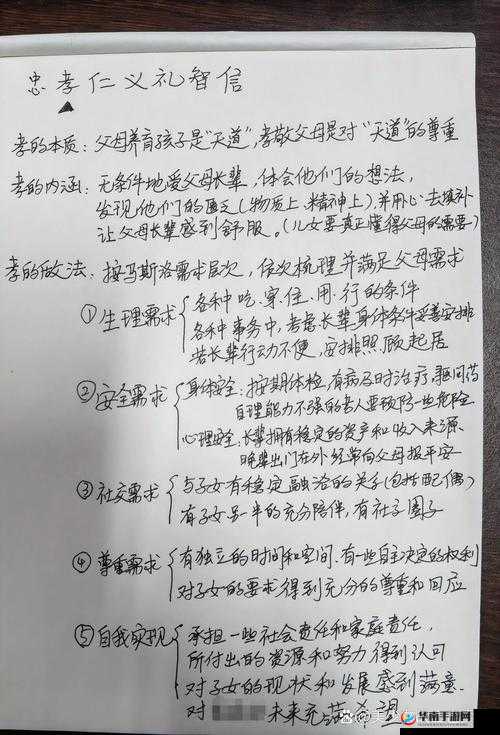 忠孝仁义礼智信
孝的本质：父母养育孩子是“天道”，孝敬父母是对“天道”的尊重
孝的内涵：无条件地爱父母长辈，体会他们的想法，
发现他们的匮乏（物质上、精神上），并用心去填补
让父母长辈感到舒服。（儿女要真正懂得父母的需要）
孝的做法：按马斯洛需求层次，依次梳理并满足父母需求
①生理需求 各种吃、穿、住、用、行的条件
各种事务中，考虑长辈身体条件妥善安排
若长辈行动不便，安排照顾起居
②安全需求 身体安全：按期体检，有病及时治疗，驱问药
自理能力不强的老人要预防一些危险
心理安全：长辈拥有稳定的资产和收入来源
晚辈出门在外经常向父母报平安
③社交需求 与子女有稳定融洽的关系（包括配偶）
有子女另一半的充分陪伴，有社交圈子
④尊重需求 有独立的时间和空间，有一些自主决定的权利
对子女的要求得到充分的尊重和回应
⑤自我实现 承担一些社会责任和家庭责任，
所付出的资源和努力得到认可
对子女的现状和发展感到满意
对 未来充满希望
华南手游网